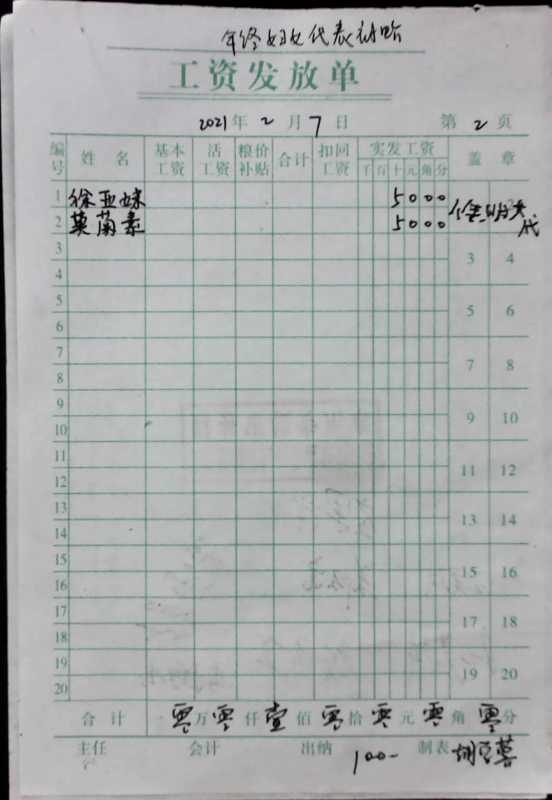 年终妇女代表补贴
工资发放单
2021年2月7日 第2页
编号 姓名 基本工资 活工资 粮价补贴 合计 扣回工资 实发工资 千百十元角分 盖章
1 徐亚妹 5000
2 莫菊素 5000 代
3 3 4
4
5 5 6
6
7 7 8
8
9 9 10
10
11 11 12
12
13 13 14
14
15 15 16
16
17 17 18
18
19 19 20
20
合计 零万零仟壹佰零拾零元零角零分
主任 会计 出纳 100- 制表